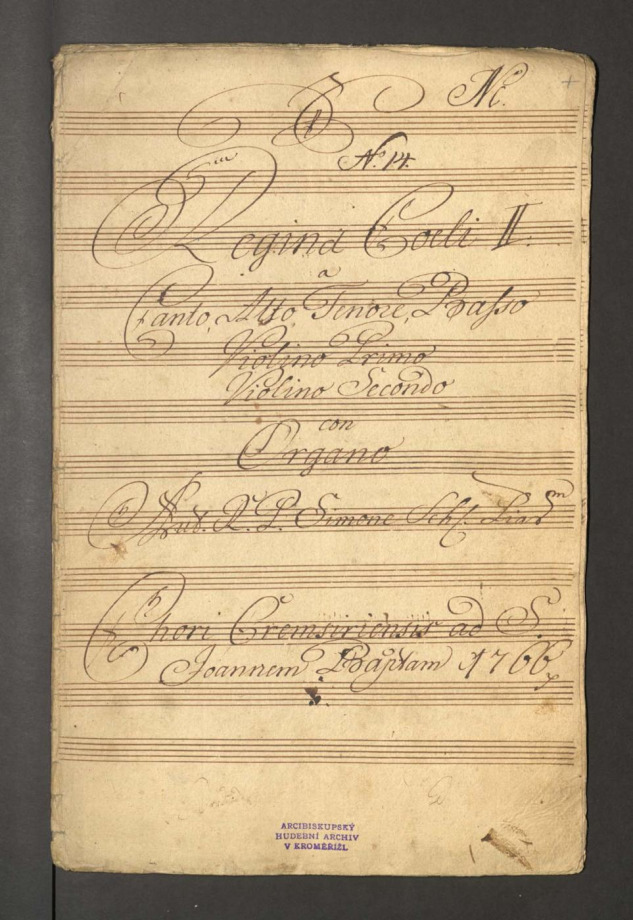 N:
No 14.
Regina Coeli II.
a
Canto, Alto, Tenore, Basso
Violino Primo
Violino Secondo
con
Organo
R. P. Simone Sch. Piar
Chori Cremsiriensis ad S.
Joannem Bapt̃am 1766
ARCIBISKUPSKÝ
HUDEBNÍ ARCHIV
V KROMĚŘÍŽI.